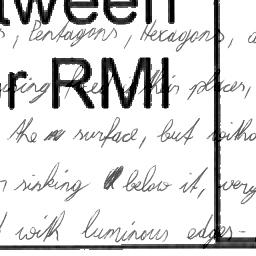 tween
s, Pentagons, Hexagons,
r RMI
places,
the surface, but witho
sinking below it, very
with luminous edges-